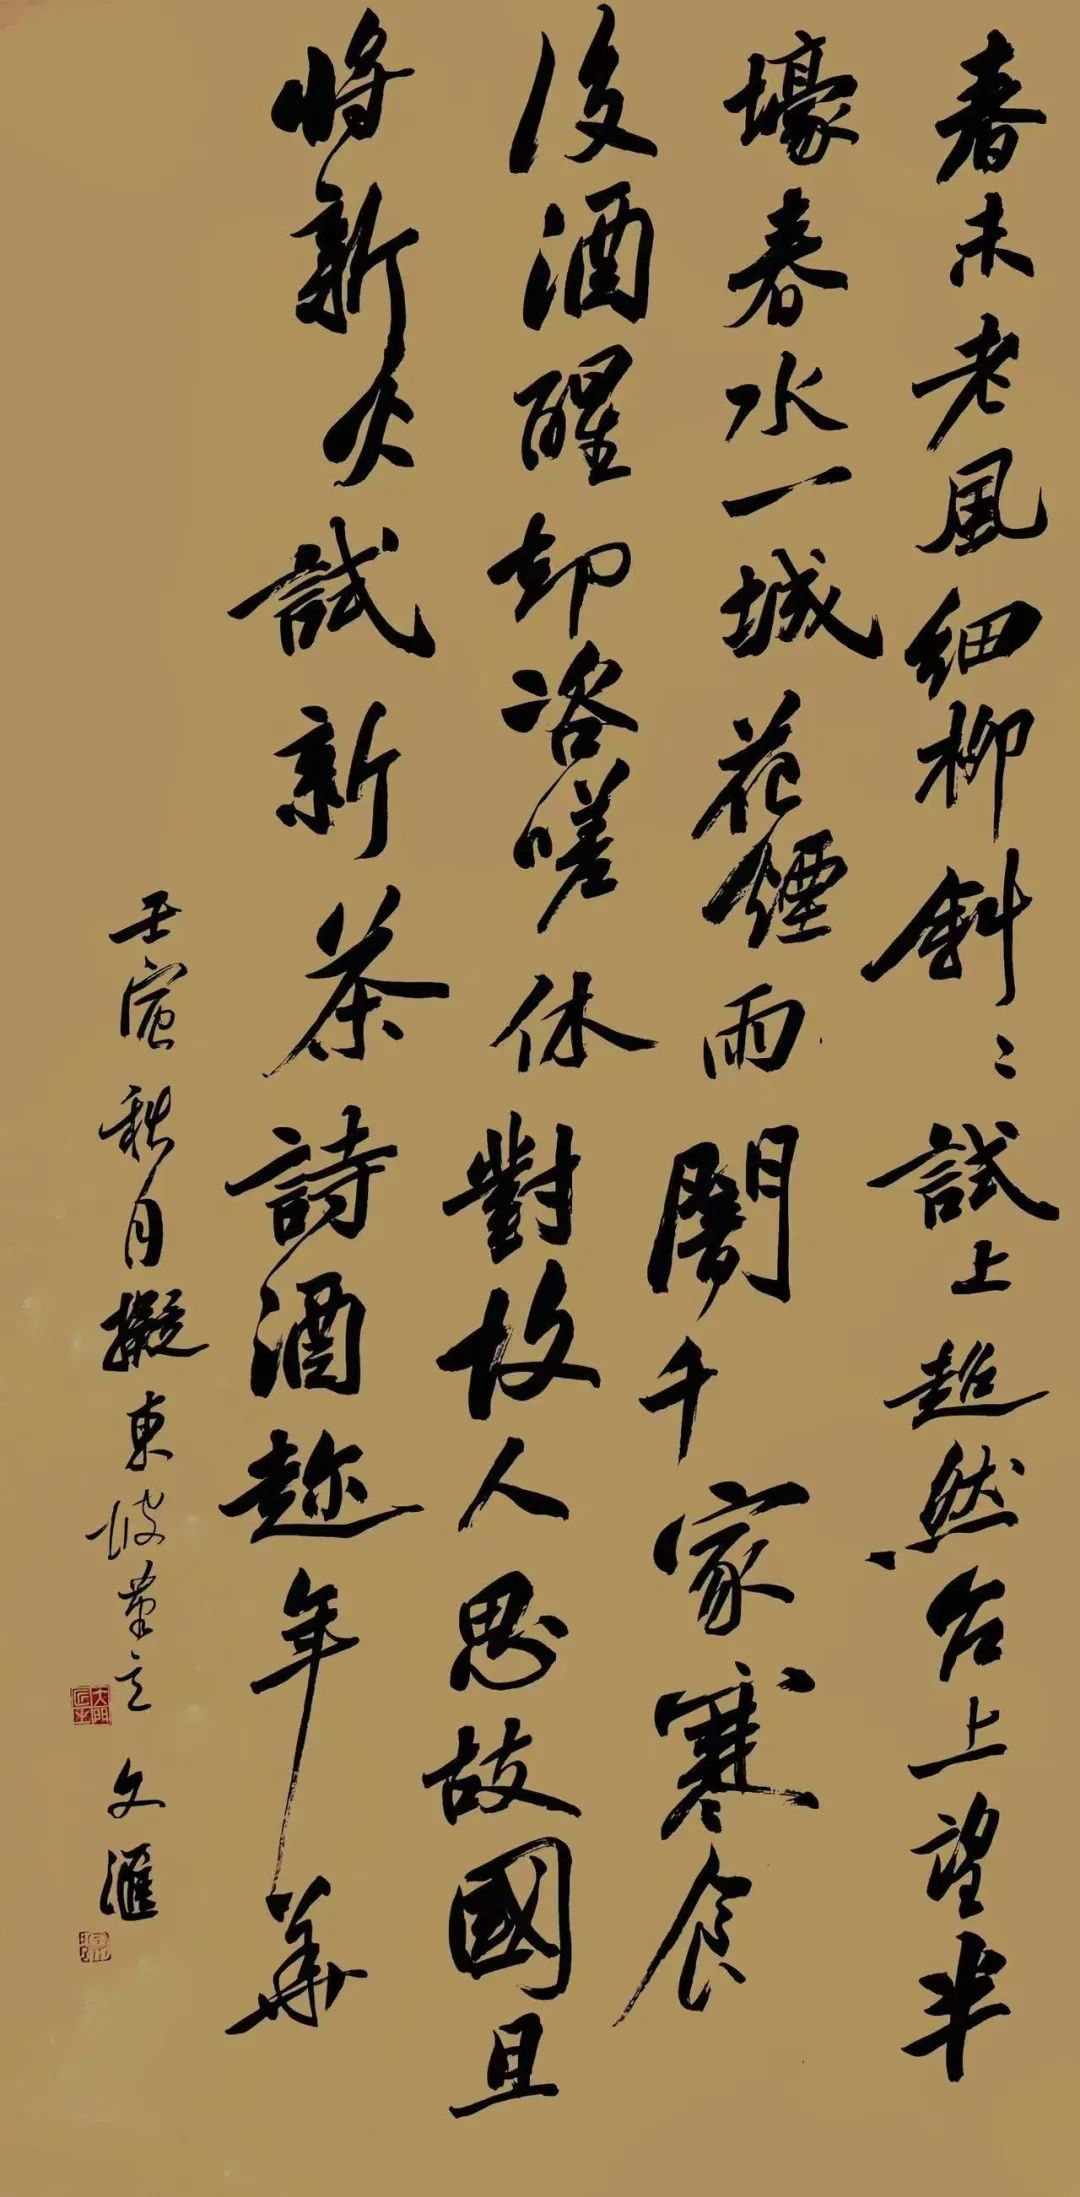 春未老風細柳斜〻試上超然台上望半
壕春水一城花煙雨闇千家寒食
後酒醒却咨嗟休對故人思故國且
將新火試新茶詩酒趂年華
壬寅秋月擬東坡筆意 文滙